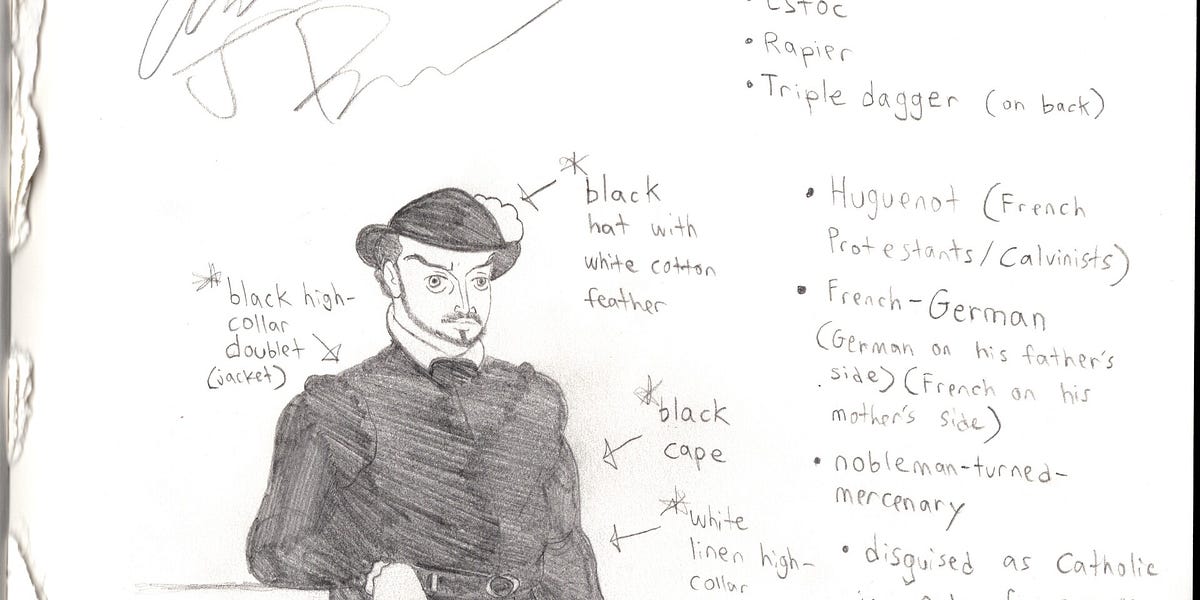 • Estoc
• Rapier
• Triple dagger (on back)
* black
hat with
white cotton
feather
* black high-
collar
doublet
(jacket)
* black
cape
* white
linen high-
collar
• Huguenot (French
Protestants/Calvinists)
• French-German
(German on his father's
side) (French on his
mother's side)
• nobleman-turned-
mercenary
• disguised as Catholic